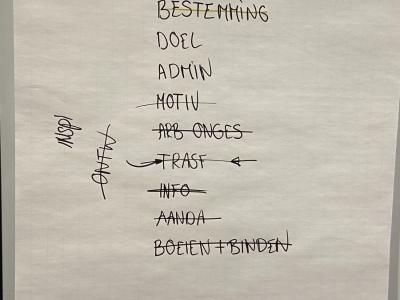 BESTEMMING
DOEL
ADMIN
MOTIV
ARB ONGES
TRASF
INFO
AANDA
BOEIEN + BINDEN
INSPI